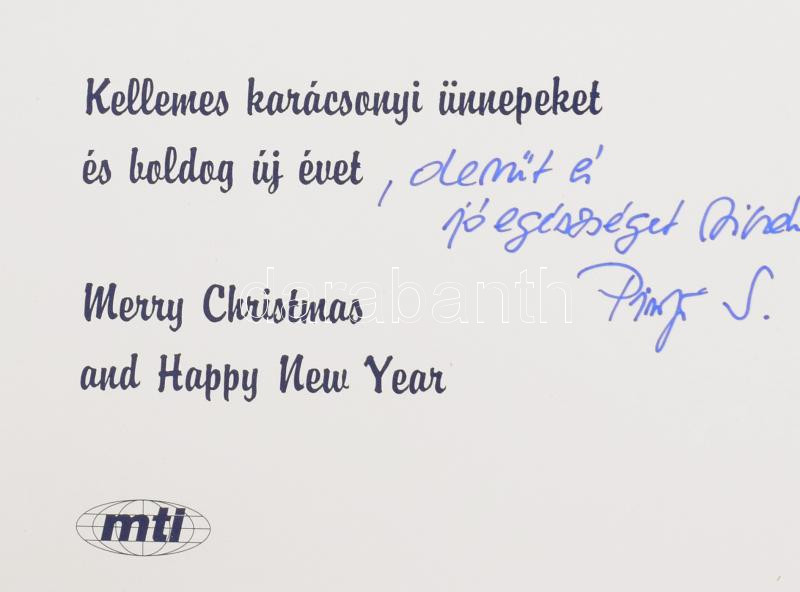 Kellemes karácsonyi ünnepeket
és boldog új évet , derűt és
jó egészséget
Merry Christmas
and Happy New Year
darabanth
mti